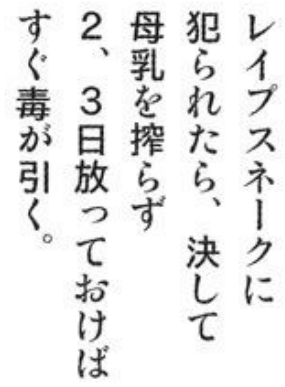 レイプスネークに
犯られたら、決して
母乳を搾らず
2、3日放っておけば
すぐ毒が引く。